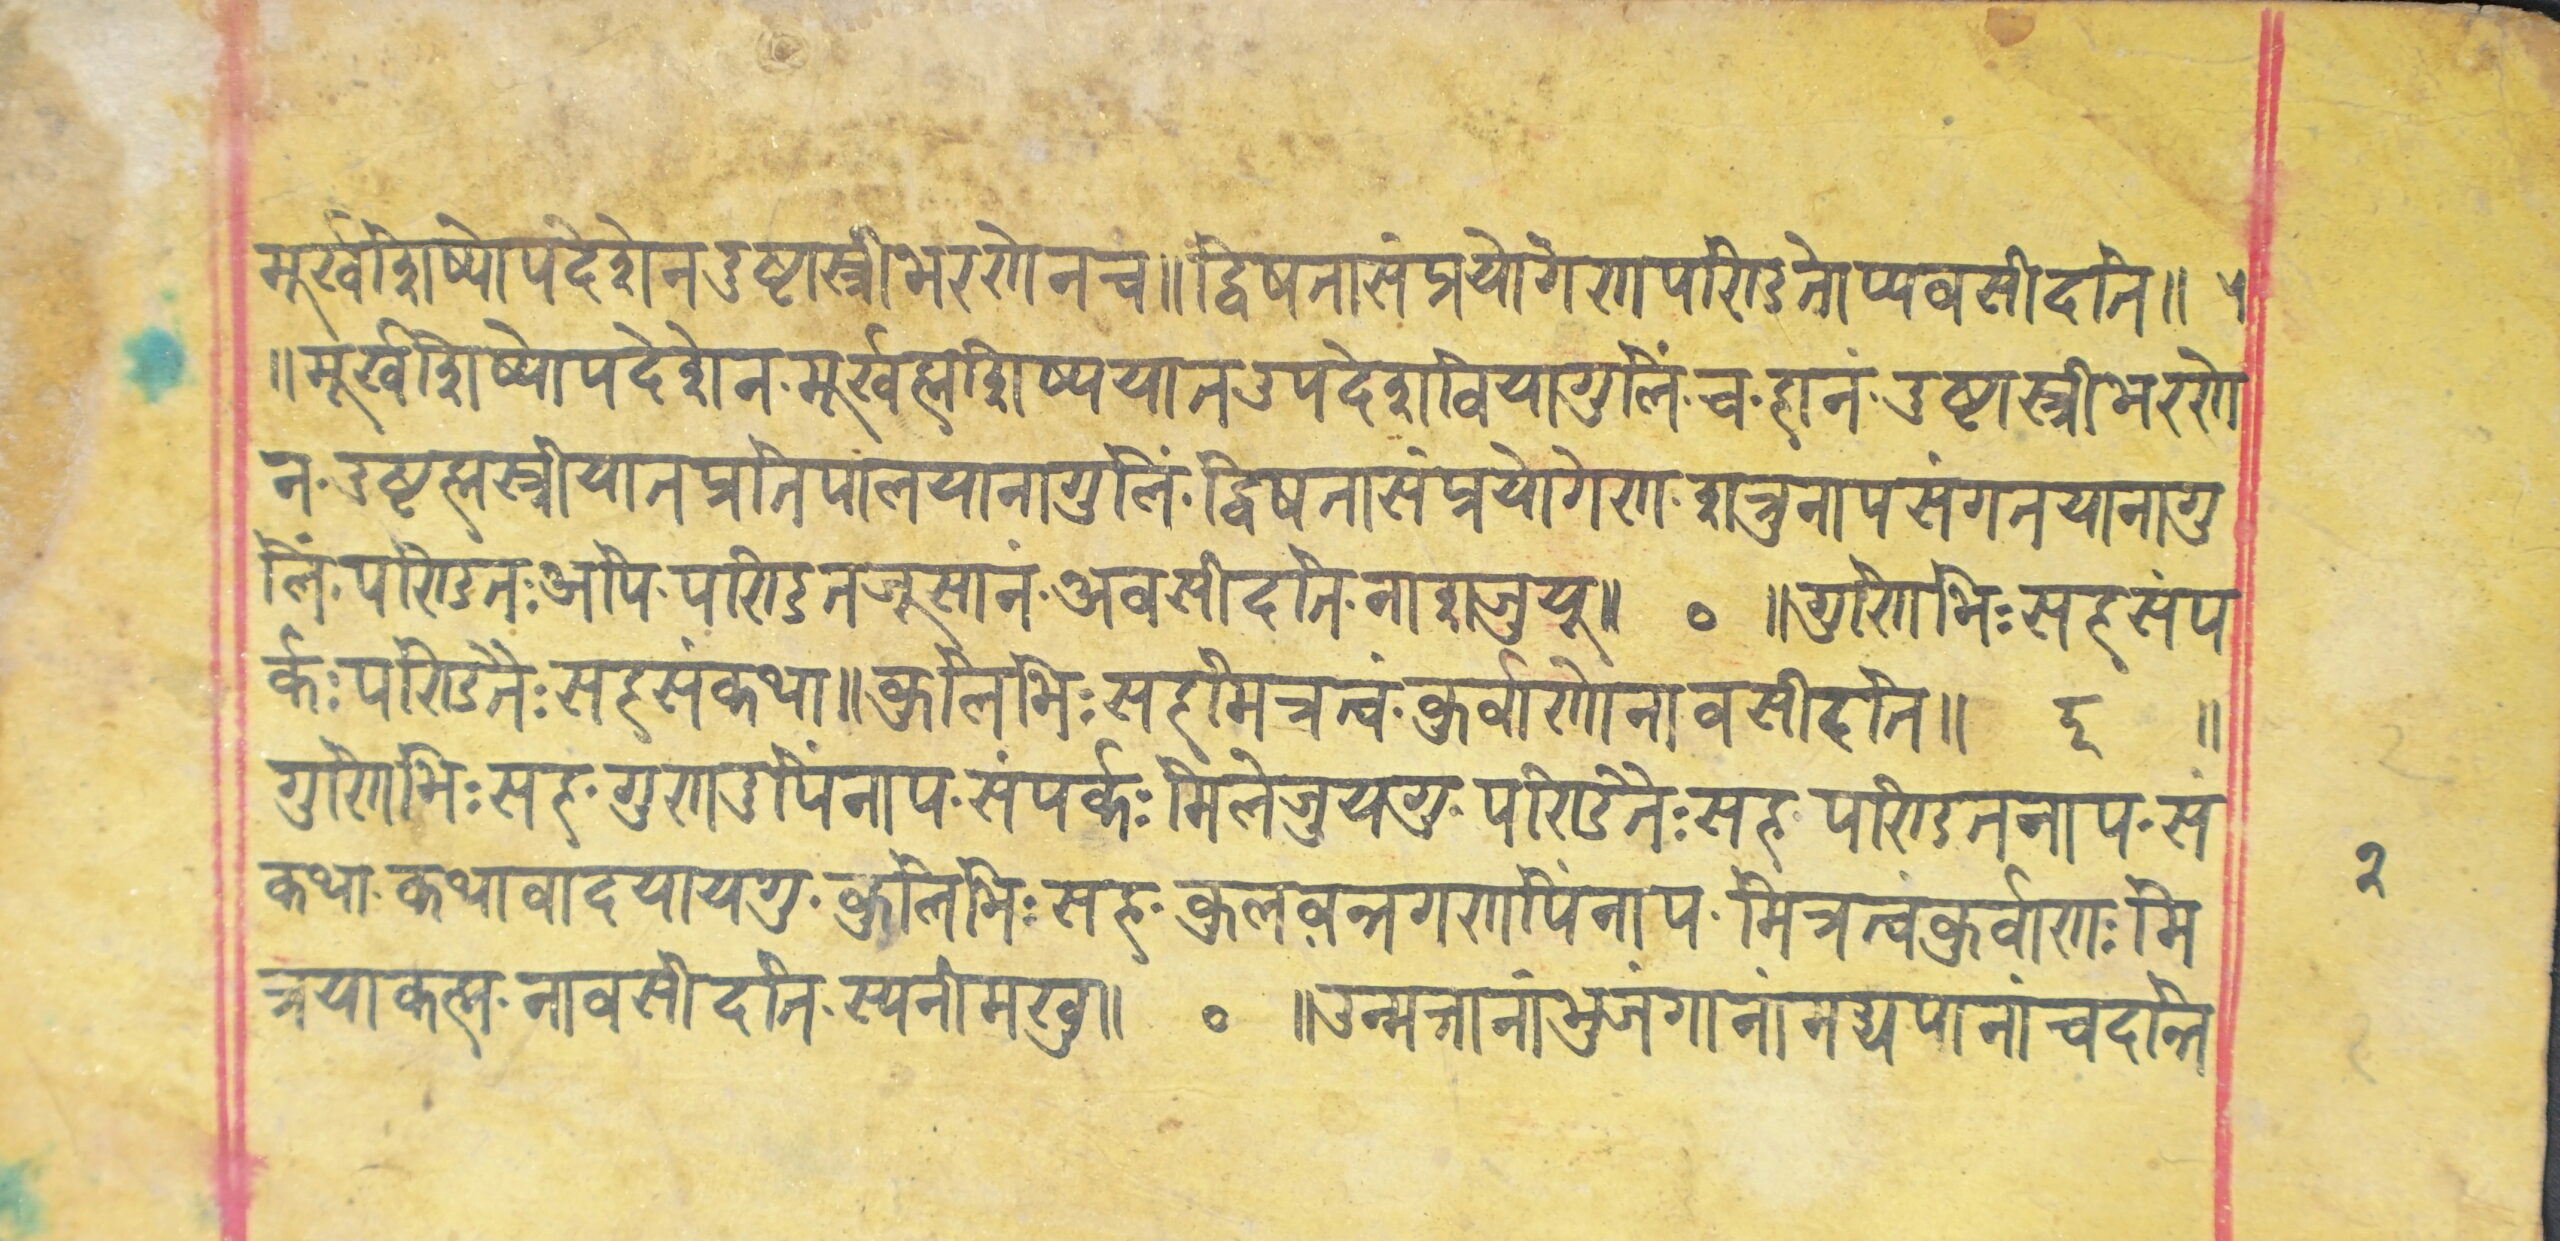 मूर्खशिष्योपदेशेनदुष्टास्त्रीभरणेनच॥द्विषतासंप्रयोगेणपण्डितोप्यवसीदति॥ ५
॥मूर्खशिष्योपदेशेन·मूर्खह्मशिष्ययातउपदेशवियागुलिं·च·हानं·दुष्टास्त्रीभरणे
न·दुष्टह्मस्त्रीयातप्रतिपालयानागुलिं·द्विषतासंप्रयोगेण·शत्रुनापसंगतयानागु
लिं·पण्डितः·अपि·पण्डितजूसानं·अवसीदति·नाशजुयू॥ ० ॥गुणिभिःसहसंप
र्कःपण्डितैःसहसंकथा॥कुलिभिःसहमित्रत्वं·कुर्वाणोनावसीदति॥ ६ ॥
गुणिभिःसह·गुणदुपिंनाप·संपर्कःमिलेजुयगु·पण्डितैःसह·पण्डितनाप·सं
कथा·कथावादयायगु·कुलिभिःसह·कुलवन्तगणपिंनाप·मित्रत्वंकुर्वाणःमि
त्रयाकह्म·नावसीदति·स्यनीमखु॥ ० ॥उन्मत्तानांभुजंगानांमद्यपानांचदन्ति
२